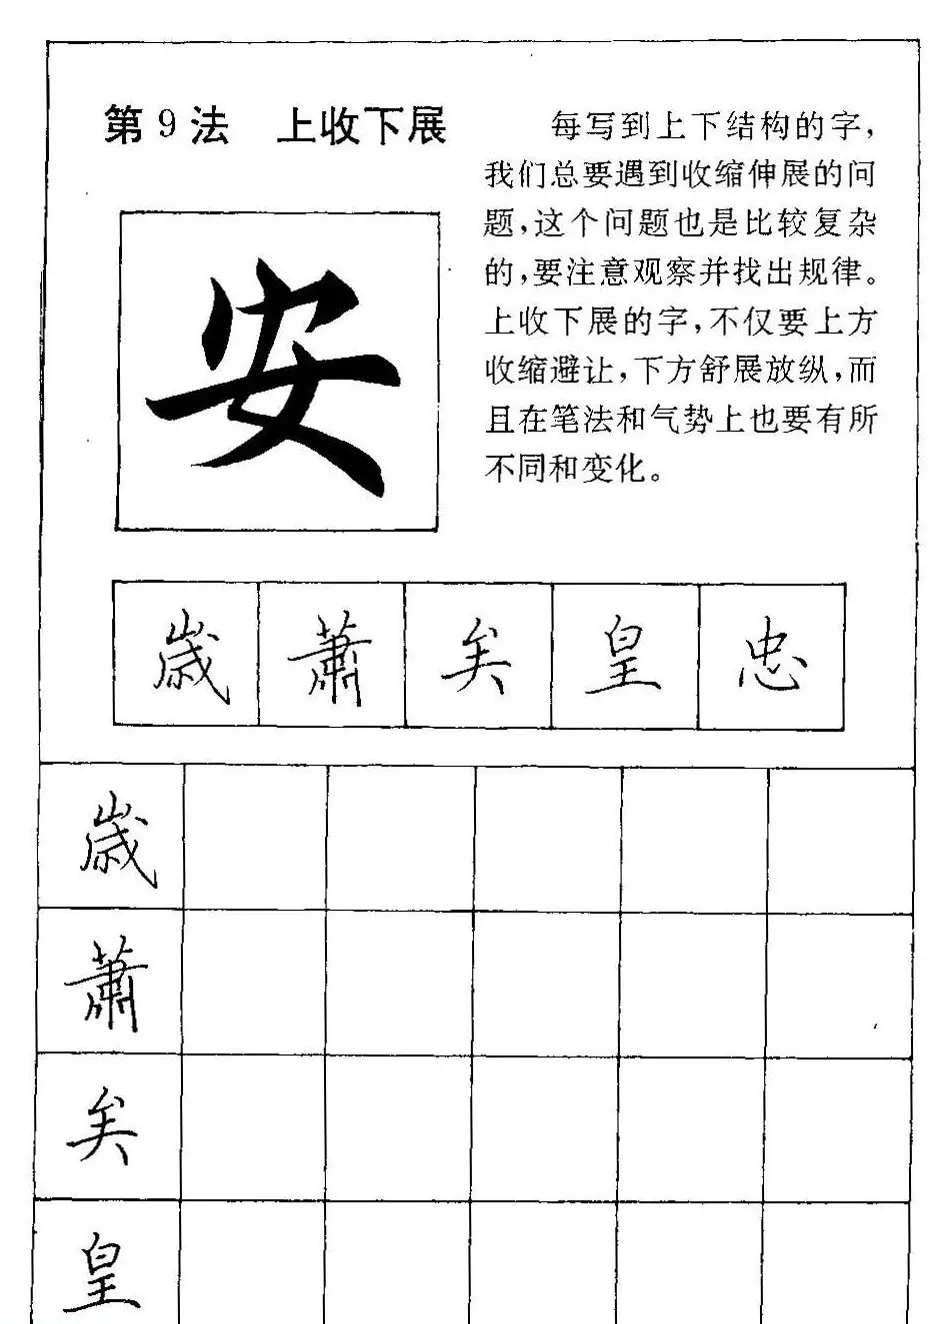 第9法 上收下展
每写到上下结构的字，
我们总要遇到收缩伸展的问
题，这个问题也是比较复杂
的，要注意观察并找出规律。
上收下展的字，不仅要上方
收缩避让，下方舒展放纵，而
且在笔法和气势上也要有所
不同和变化。
安
歲 蕭 矣 皇 忠
歲
蕭
矣
皇